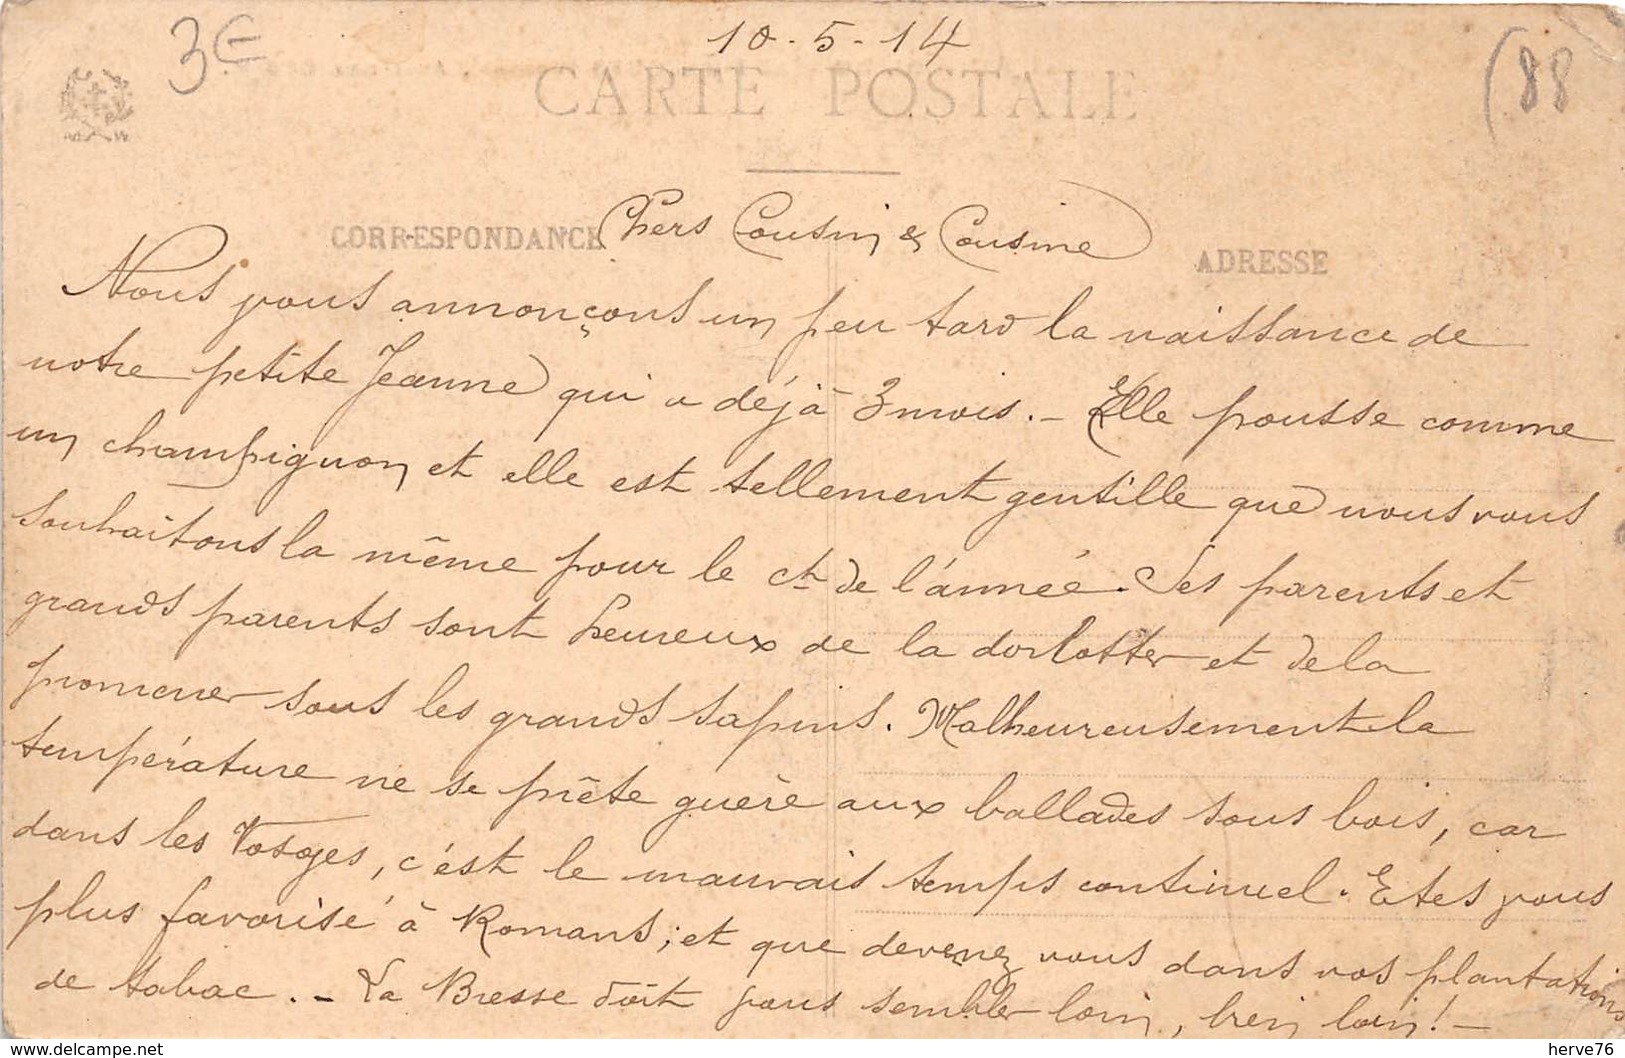 10-5-14
3€
(88
CARTE POSTALE
CORRESPONDANCE
ADRESSE
Chers Cousin & Cousine
Nous vous annonçons un peu tard la naissance de
notre petite Jeanne qui a déjà 3 mois. - Elle pousse comme
un champignon et elle est tellement gentille que nous vous
souhaitons la même pour le ct de l'année. Ses parents et
grands parents sont heureux de la dorlotter et de la
promener sous les grands sapins. Malheureusement la
température ne se prête guère aux ballades sous bois, car
dans les Vosges, c'est le mauvais temps continuel. Etes vous
plus favorisé à Romans; et que devenez vous dans vos plantations
de tabac. - La Bresse doit vous sembler loin, bien loin! -
delcampe.net
herve76